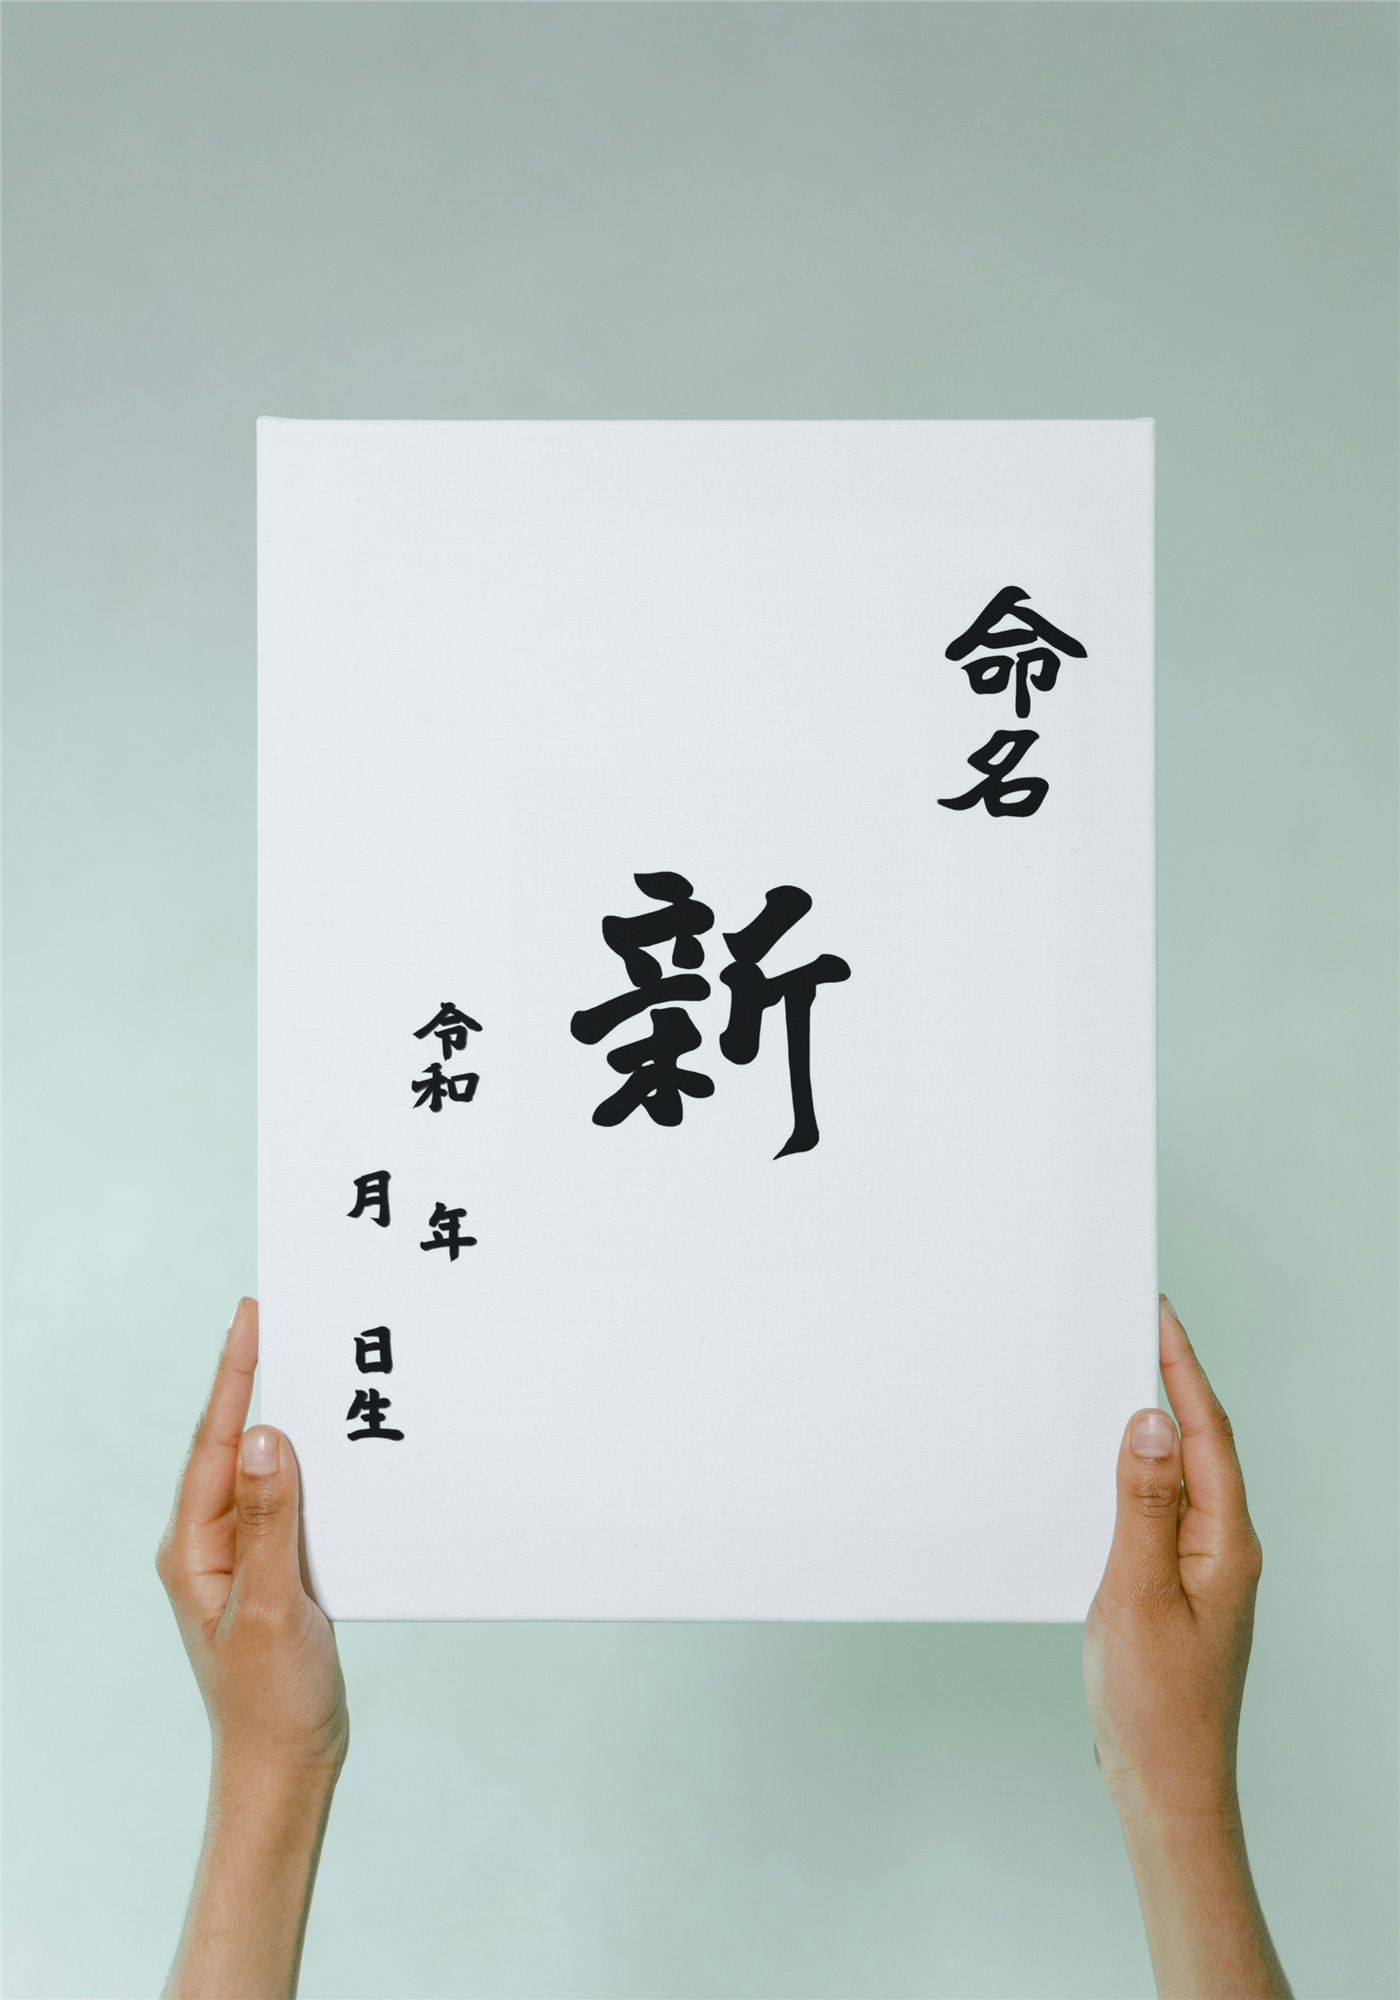 命名
新
令和 年
月 日生